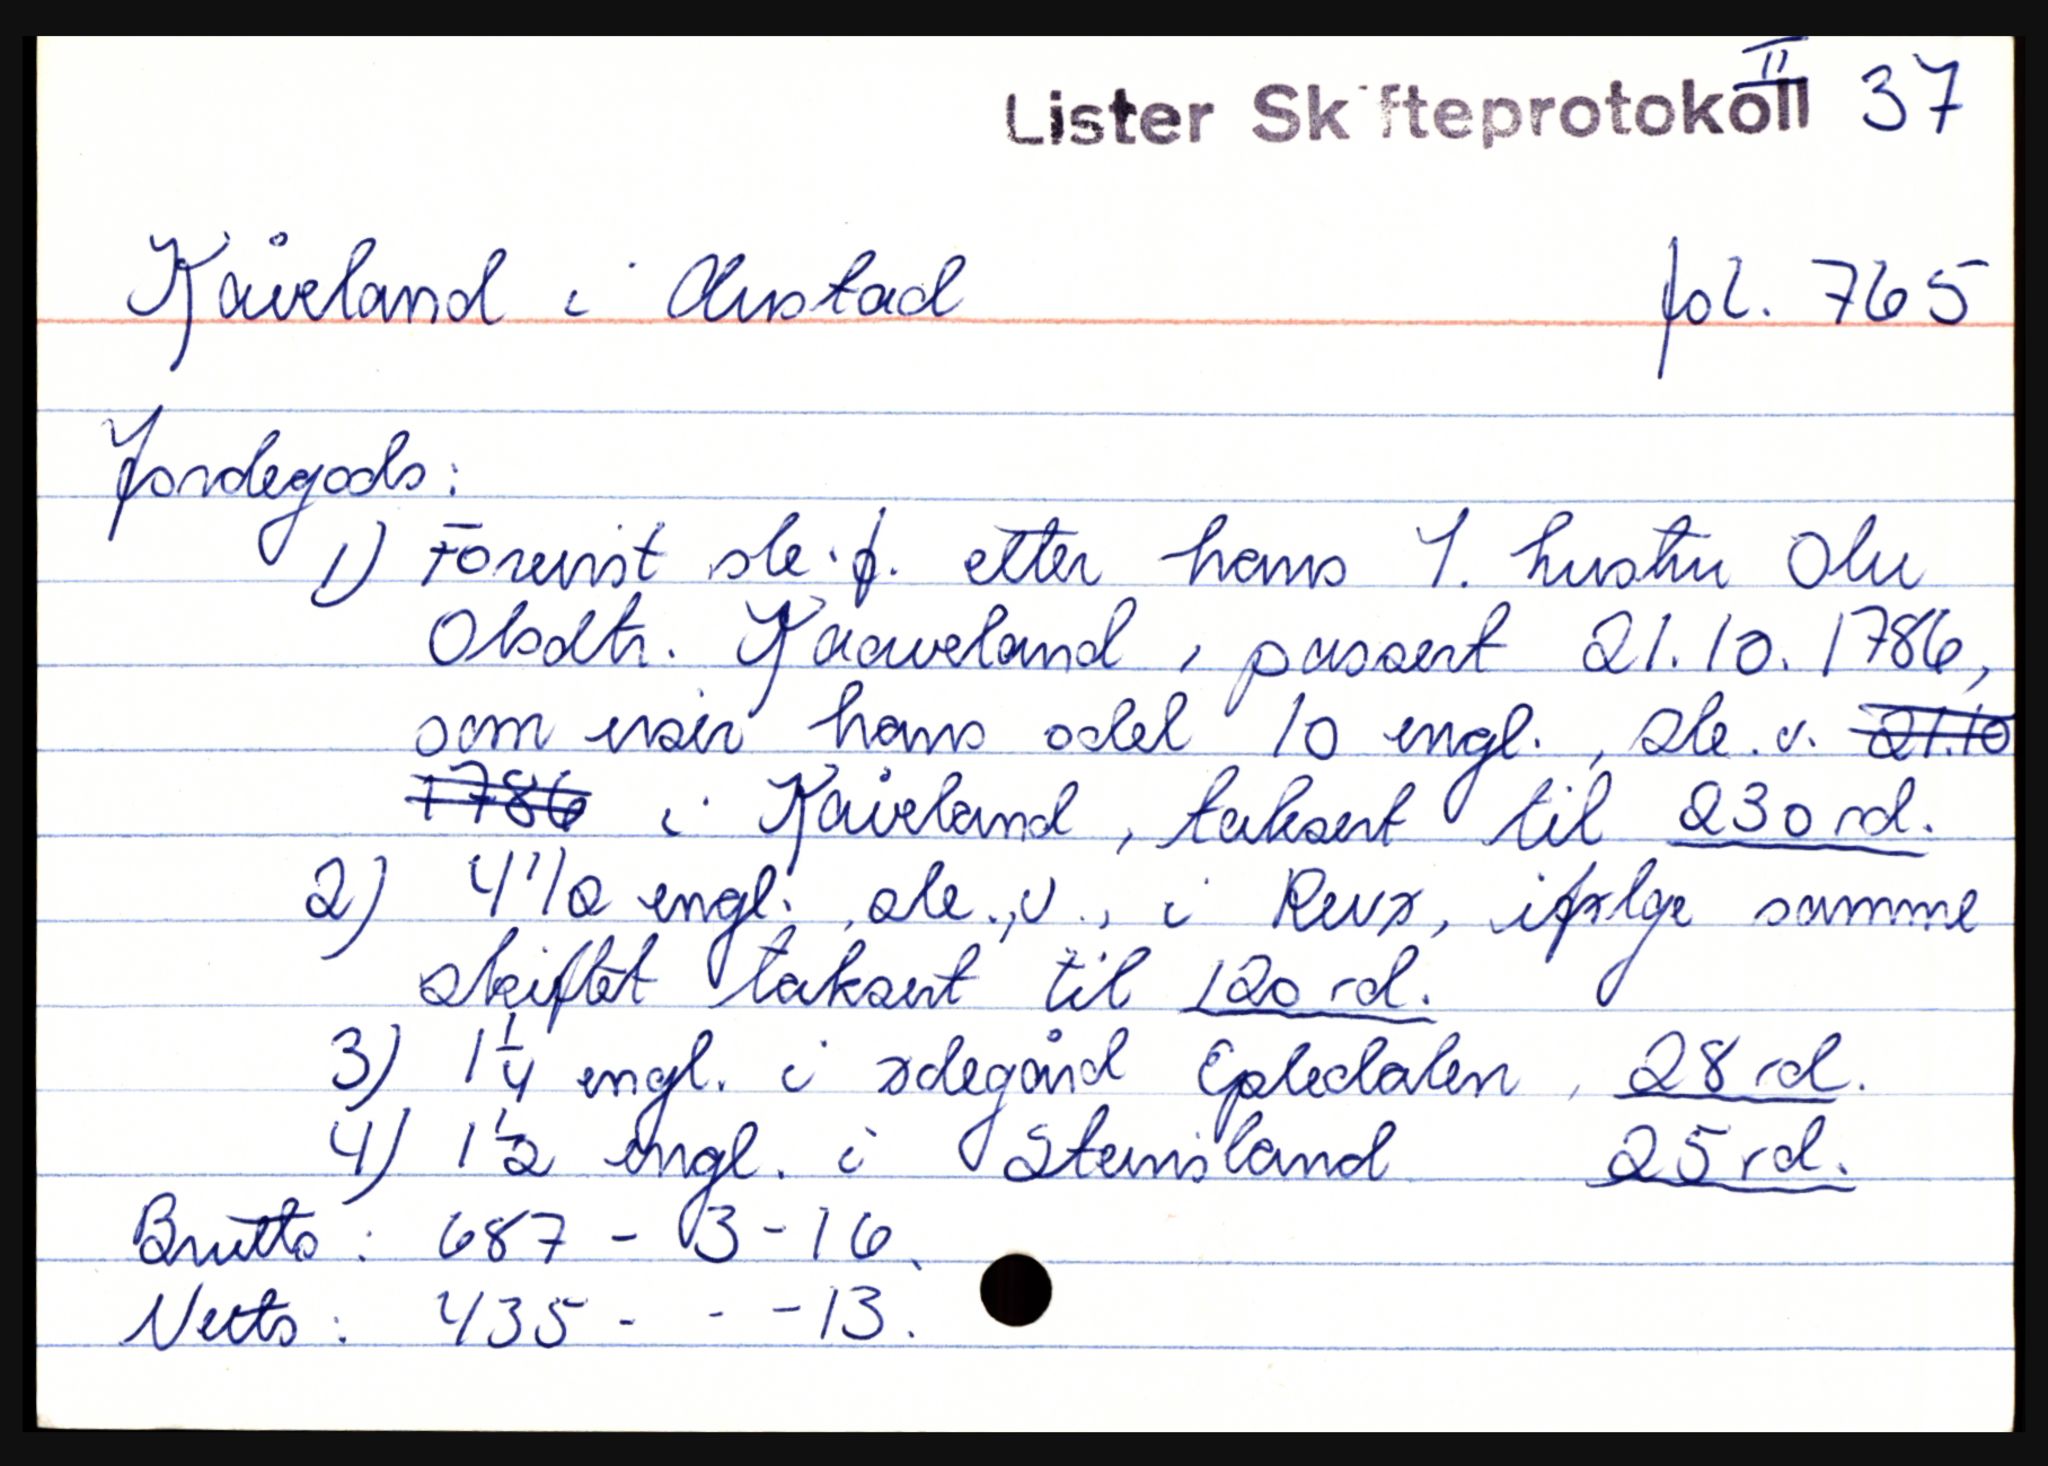 II
Lister Skifteprotokoll 37
Kåveland i Austad fol. 765
Jordegods:
1) Forevist ske.f. etter hans 1. hustru Olu
Olsdtr. Kaaveland, passert 21.10.1786,
som viser hans odel 10 engl., ske.v. 21.10
1786 i Kåveland, taksert til 230 rd.
2) 4 1/2 engl., ske.,v., i Revø, ifølge samme
skiftet taksert til 120 rd.
3) 1 1/4 engl. i ødegård Epledalen, 28 rd.
4) 1 1/2 engl. i Steinsland 25 rd.
Brutto: 687 - 3 - 16.
Netto: 435 - - - 13.